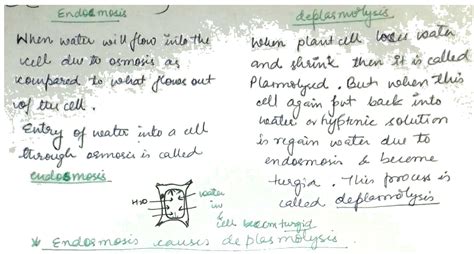 Endosmosis
When water will flow into the
cell due to osmosis as
compared to what flows out
of the cell.
Entry of water into a cell
through osmosis is called
endosmosis
deplasmolysis
When plant cell loses water
and shrink then it is called
Plasmolysed. But when this
cell again put back into
water or hyptnic solution
is regain water due to
endosmosis & become
turgid. This process is
called deplasmolysis
H2O
water
in
cell becom turgid
* Endosmosis causes deplasmolysis.